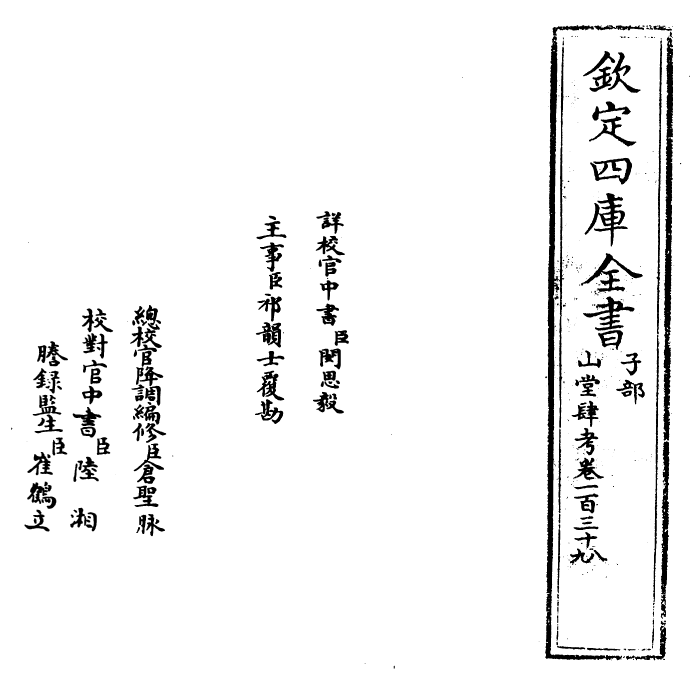 欽定四庫全書
子部
山堂肆考卷一百三十八九
詳校官中書臣閔思毅
主事臣祁韻士覆勘
總校官降調編修臣倉聖脉
校對官中書臣陸湘
謄録監生臣崔鶴立